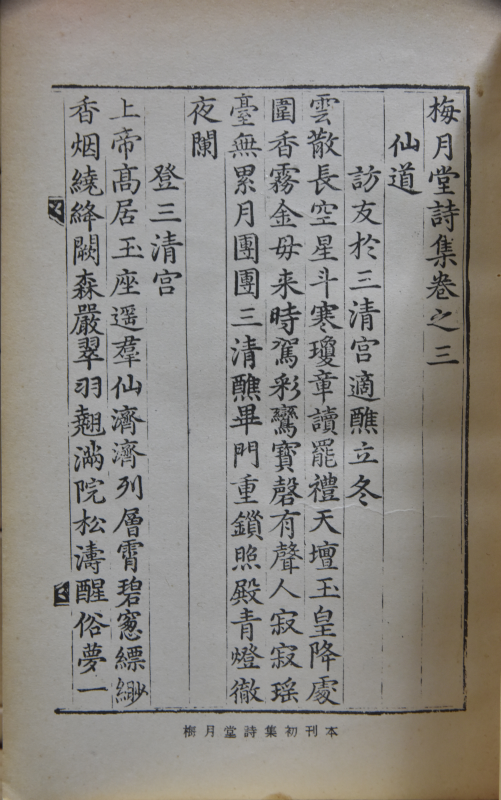 梅月堂詩集卷之三
仙道
訪友於三清宮適醮立冬
雲散長空星斗寒瓊章讀罷禮天壇玉皇降處
圍香霧金母来時駕彩鸞寶磬有聲人寂寂瑶
臺無累月團團三清醮畢門重鎖照殿青燈徹
夜闌
登三清宮
上帝高居玉座遥羣仙濟濟列層霄碧窓縹緲
香烟繞絳闕森嚴翠羽翹滿院松濤醒俗夢一
梅月堂詩集初刊本